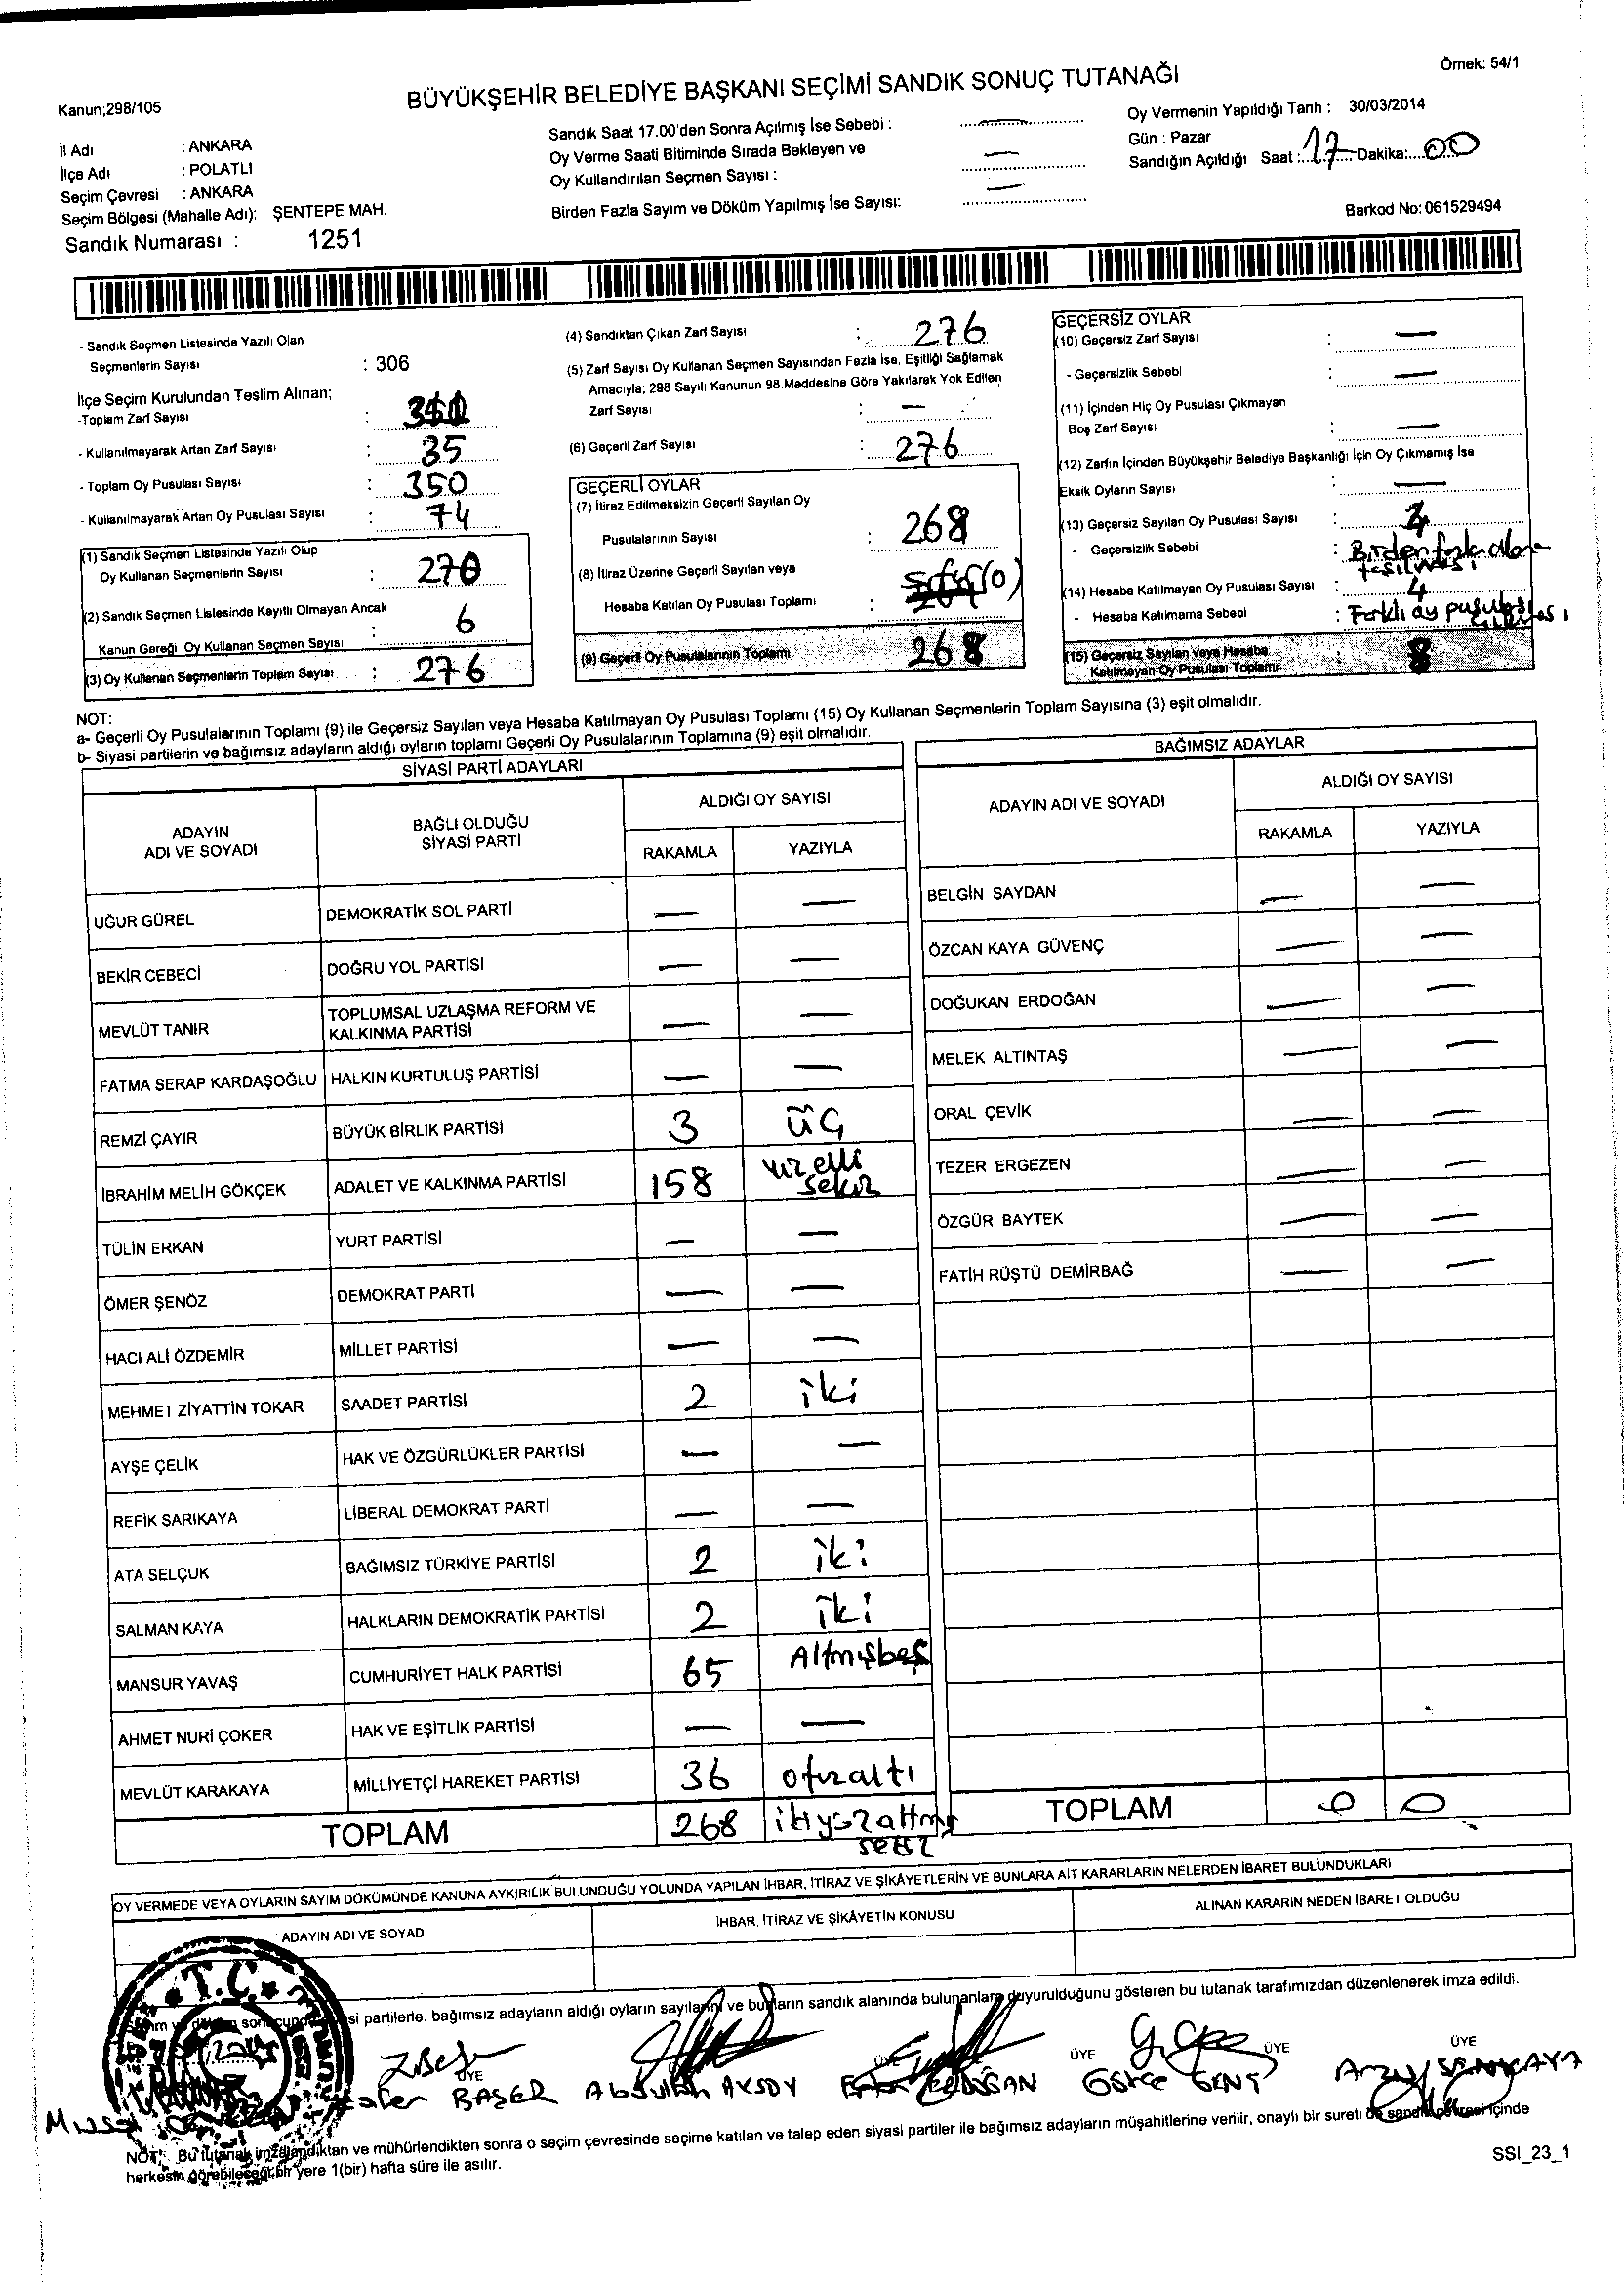 Örnek: 54/1
Kanun;298/105
BÜYÜKŞEHİR BELEDİYE BAŞKANI SEÇİMİ SANDIK SONUÇ TUTANAĞI
İl Adı : ANKARA
İlçe Adı : POLATLI
Seçim Çevresi : ANKARA
Seçim Bölgesi (Mahalle Adı): ŞENTEPE MAH.
Sandık Numarası : 1251
Sandık Saat 17.00'den Sonra Açılmış İse Sebebi : —
Oy Verme Saati Bitiminde Sırada Bekleyen ve
Oy Kullandırılan Seçmen Sayısı : —
Birden Fazla Sayım ve Döküm Yapılmış İse Sayısı: —
Oy Vermenin Yapıldığı Tarih : 30/03/2014
Gün : Pazar
Sandığın Açıldığı Saat : 17 Dakika: 00
Barkod No: 061529494
- Sandık Seçmen Listesinde Yazılı Olan
Seçmenlerin Sayısı : 306
İlçe Seçim Kurulundan Teslim Alınan;
-Toplam Zarf Sayısı :
- Kullanılmayarak Artan Zarf Sayısı : 35
- Toplam Oy Pusulası Sayısı : 350
- Kullanılmayarak Artan Oy Pusulası Sayısı : 74
(1) Sandık Seçmen Listesinde Yazılı Olup
Oy Kullanan Seçmenlerin Sayısı : 270
(2) Sandık Seçmen Listesinde Kayıtlı Olmayan Ancak
Kanun Gereği Oy Kullanan Seçmen Sayısı : 6
(3) Oy Kullanan Seçmenlerin Toplam Sayısı : 276
(4) Sandıktan Çıkan Zarf Sayısı : 276
(5) Zarf Sayısı Oy Kullanan Seçmen Sayısından Fazla İse, Eşitliği Sağlamak
Amacıyla; 298 Sayılı Kanunun 98.Maddesine Göre Yakılarak Yok Edilen
Zarf Sayısı : —
(6) Geçerli Zarf Sayısı : 276
GEÇERLİ OYLAR
(7) İtiraz Edilmeksizin Geçerli Sayılan Oy
Pusulalarının Sayısı : 268
(8) İtiraz Üzerine Geçerli Sayılan veya
Hesaba Katılan Oy Pusulası Toplamı : (0)
(9) Geçerli Oy Pusulalarının Toplamı 268
GEÇERSİZ OYLAR
(10) Geçersiz Zarf Sayısı : —
- Geçersizlik Sebebi : —
(11) İçinden Hiç Oy Pusulası Çıkmayan
Boş Zarf Sayısı : —
(12) Zarfın İçinden Büyükşehir Belediye Başkanlığı İçin Oy Çıkmamış İse
Eksik Oyların Sayısı : —
(13) Geçersiz Sayılan Oy Pusulası Sayısı :
- Geçersizlik Sebebi : Birden fazla alana
(14) Hesaba Katılmayan Oy Pusulası Sayısı : 4
- Hesaba Katılmama Sebebi : Farklı oy pusulası
(15) Geçersiz Sayılan veya Hesaba
Katılmayan Oy Pusulası Toplamı : 8
NOT:
a- Geçerli Oy Pusulalarının Toplamı (9) ile Geçersiz Sayılan veya Hesaba Katılmayan Oy Pusulası Toplamı (15) Oy Kullanan Seçmenlerin Toplam Sayısına (3) eşit olmalıdır.
b- Siyasi partilerin ve bağımsız adayların aldığı oyların toplamı Geçerli Oy Pusulalarının Toplamına (9) eşit olmalıdır.
SİYASİ PARTİ ADAYLARI
ADAYIN ADI VE SOYADI
BAĞLI OLDUĞU SİYASİ PARTİ
ALDIĞI OY SAYISI
RAKAMLA YAZIYLA
UĞUR GÜREL DEMOKRATİK SOL PARTİ — —
BEKİR CEBECİ DOĞRU YOL PARTİSİ — —
MEVLÜT TANIR TOPLUMSAL UZLAŞMA REFORM VE KALKINMA PARTİSİ — —
FATMA SERAP KARDAŞOĞLU HALKIN KURTULUŞ PARTİSİ — —
REMZİ ÇAYIR BÜYÜK BİRLİK PARTİSİ 3 üç
İBRAHİM MELİH GÖKÇEK ADALET VE KALKINMA PARTİSİ 158 yüzelli sekiz
TÜLİN ERKAN YURT PARTİSİ — —
ÖMER ŞENÖZ DEMOKRAT PARTİ — —
HACI ALİ ÖZDEMİR MİLLET PARTİSİ — —
MEHMET ZİYATTİN TOKAR SAADET PARTİSİ 2 iki
AYŞE ÇELİK HAK VE ÖZGÜRLÜKLER PARTİSİ — —
REFİK SARIKAYA LİBERAL DEMOKRAT PARTİ — —
ATA SELÇUK BAĞIMSIZ TÜRKİYE PARTİSİ 2 iki
SALMAN KAYA HALKLARIN DEMOKRATİK PARTİSİ 2 iki
MANSUR YAVAŞ CUMHURİYET HALK PARTİSİ 65 Altmışbeş
AHMET NURİ ÇOKER HAK VE EŞİTLİK PARTİSİ — —
MEVLÜT KARAKAYA MİLLİYETÇİ HAREKET PARTİSİ 36 otuzaltı
TOPLAM 268 ikiyüzaltmış sekiz
BAĞIMSIZ ADAYLAR
ADAYIN ADI VE SOYADI
ALDIĞI OY SAYISI
RAKAMLA YAZIYLA
BELGİN SAYDAN — —
ÖZCAN KAYA GÜVENÇ — —
DOĞUKAN ERDOĞAN — —
MELEK ALTINTAŞ — —
ORAL ÇEVİK — —
TEZER ERGEZEN — —
ÖZGÜR BAYTEK — —
FATİH RÜŞTÜ DEMİRBAĞ — —
TOPLAM 0 0
OY VERMEDE VEYA OYLARIN SAYIM DÖKÜMÜNDE KANUNA AYKIRILIK BULUNDUĞU YOLUNDA YAPILAN İHBAR, İTİRAZ VE ŞİKÂYETLERİN VE BUNLARA AİT KARARLARIN NELERDEN İBARET BULUNDUKLARI
ADAYIN ADI VE SOYADI İHBAR, İTİRAZ VE ŞİKÂYETİN KONUSU ALINAN KARARIN NEDEN İBARET OLDUĞU
T.C.
partilerle, bağımsız adayların aldığı oyların sayılarını ve bunların sandık alanında bulunanlara duyurulduğunu gösteren bu tutanak tarafımızdan düzenlenerek imza edildi.
ÜYE ÜYE ÜYE ÜYE
BAŞER Abdullah AKSOY ERDOĞAN Gökçe GENÇ
NOT: Bu tutanak imzalandıktan ve mühürlendikten sonra o seçim çevresinde seçime katılan ve talep eden siyasi partiler ile bağımsız adayların müşahitlerine verilir, onaylı bir sureti de sandık çevresi içinde
herkesin görebileceği bir yere 1(bir) hafta süre ile asılır.
SSI_23_1